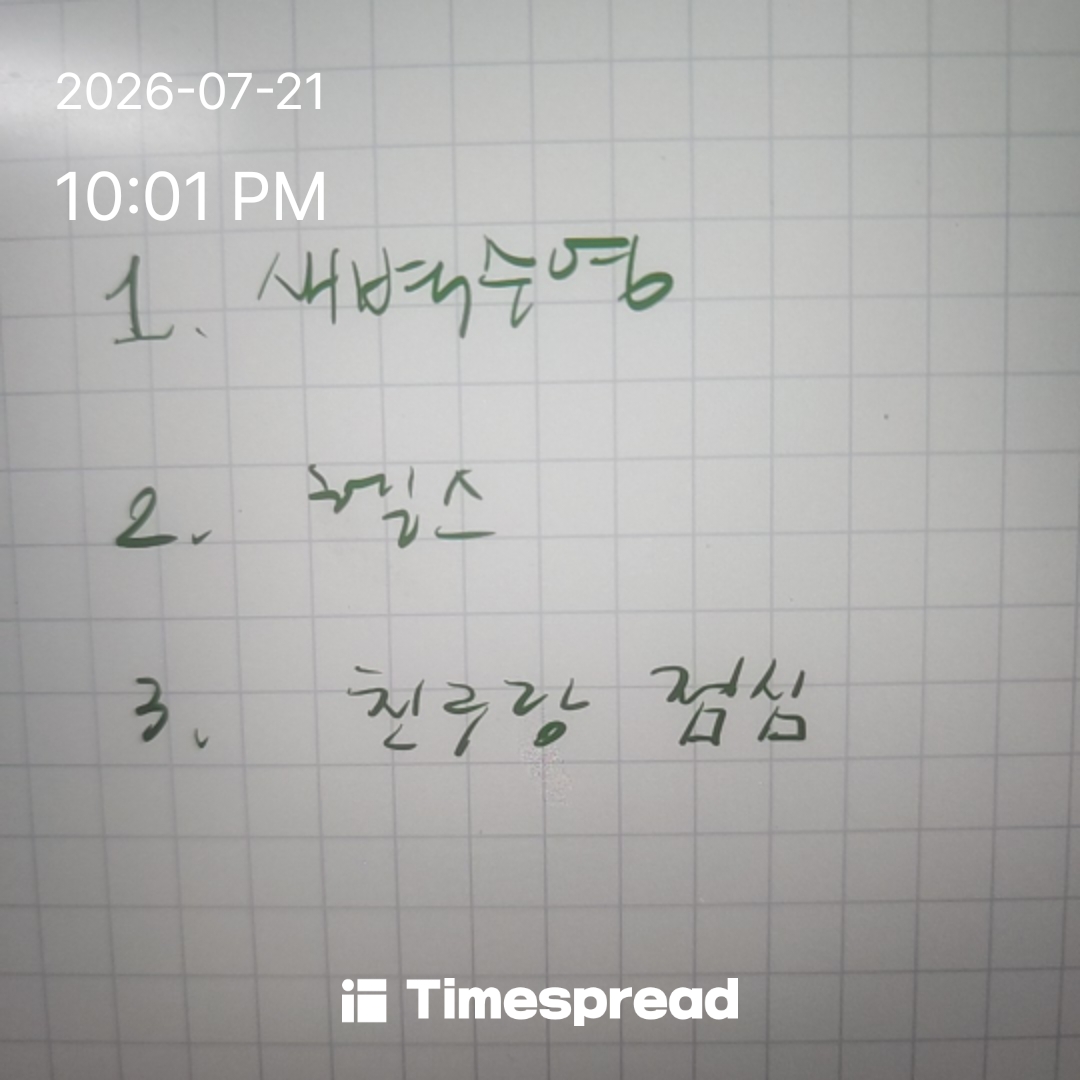 2026-07-21
10:01 PM
1. 새벽수영
2. 헬스
3. 친구랑 점심
Timespread